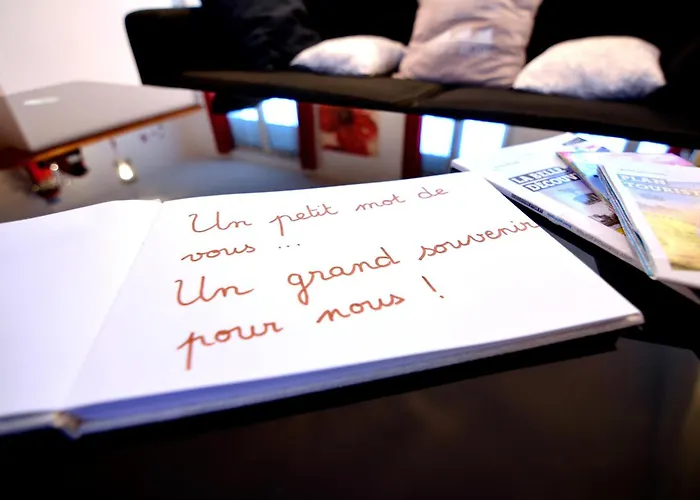 Un petit mot de
vous ...
Un grand souvenir
pour nous !
LA BELLE
DECOUV
PLAN
TOURIS